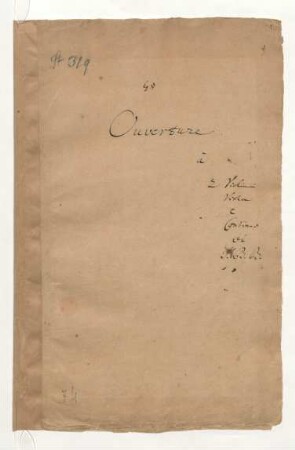 № 319
40
Ouverture
à
2 Violini
Viola
e
Continuo
di
74